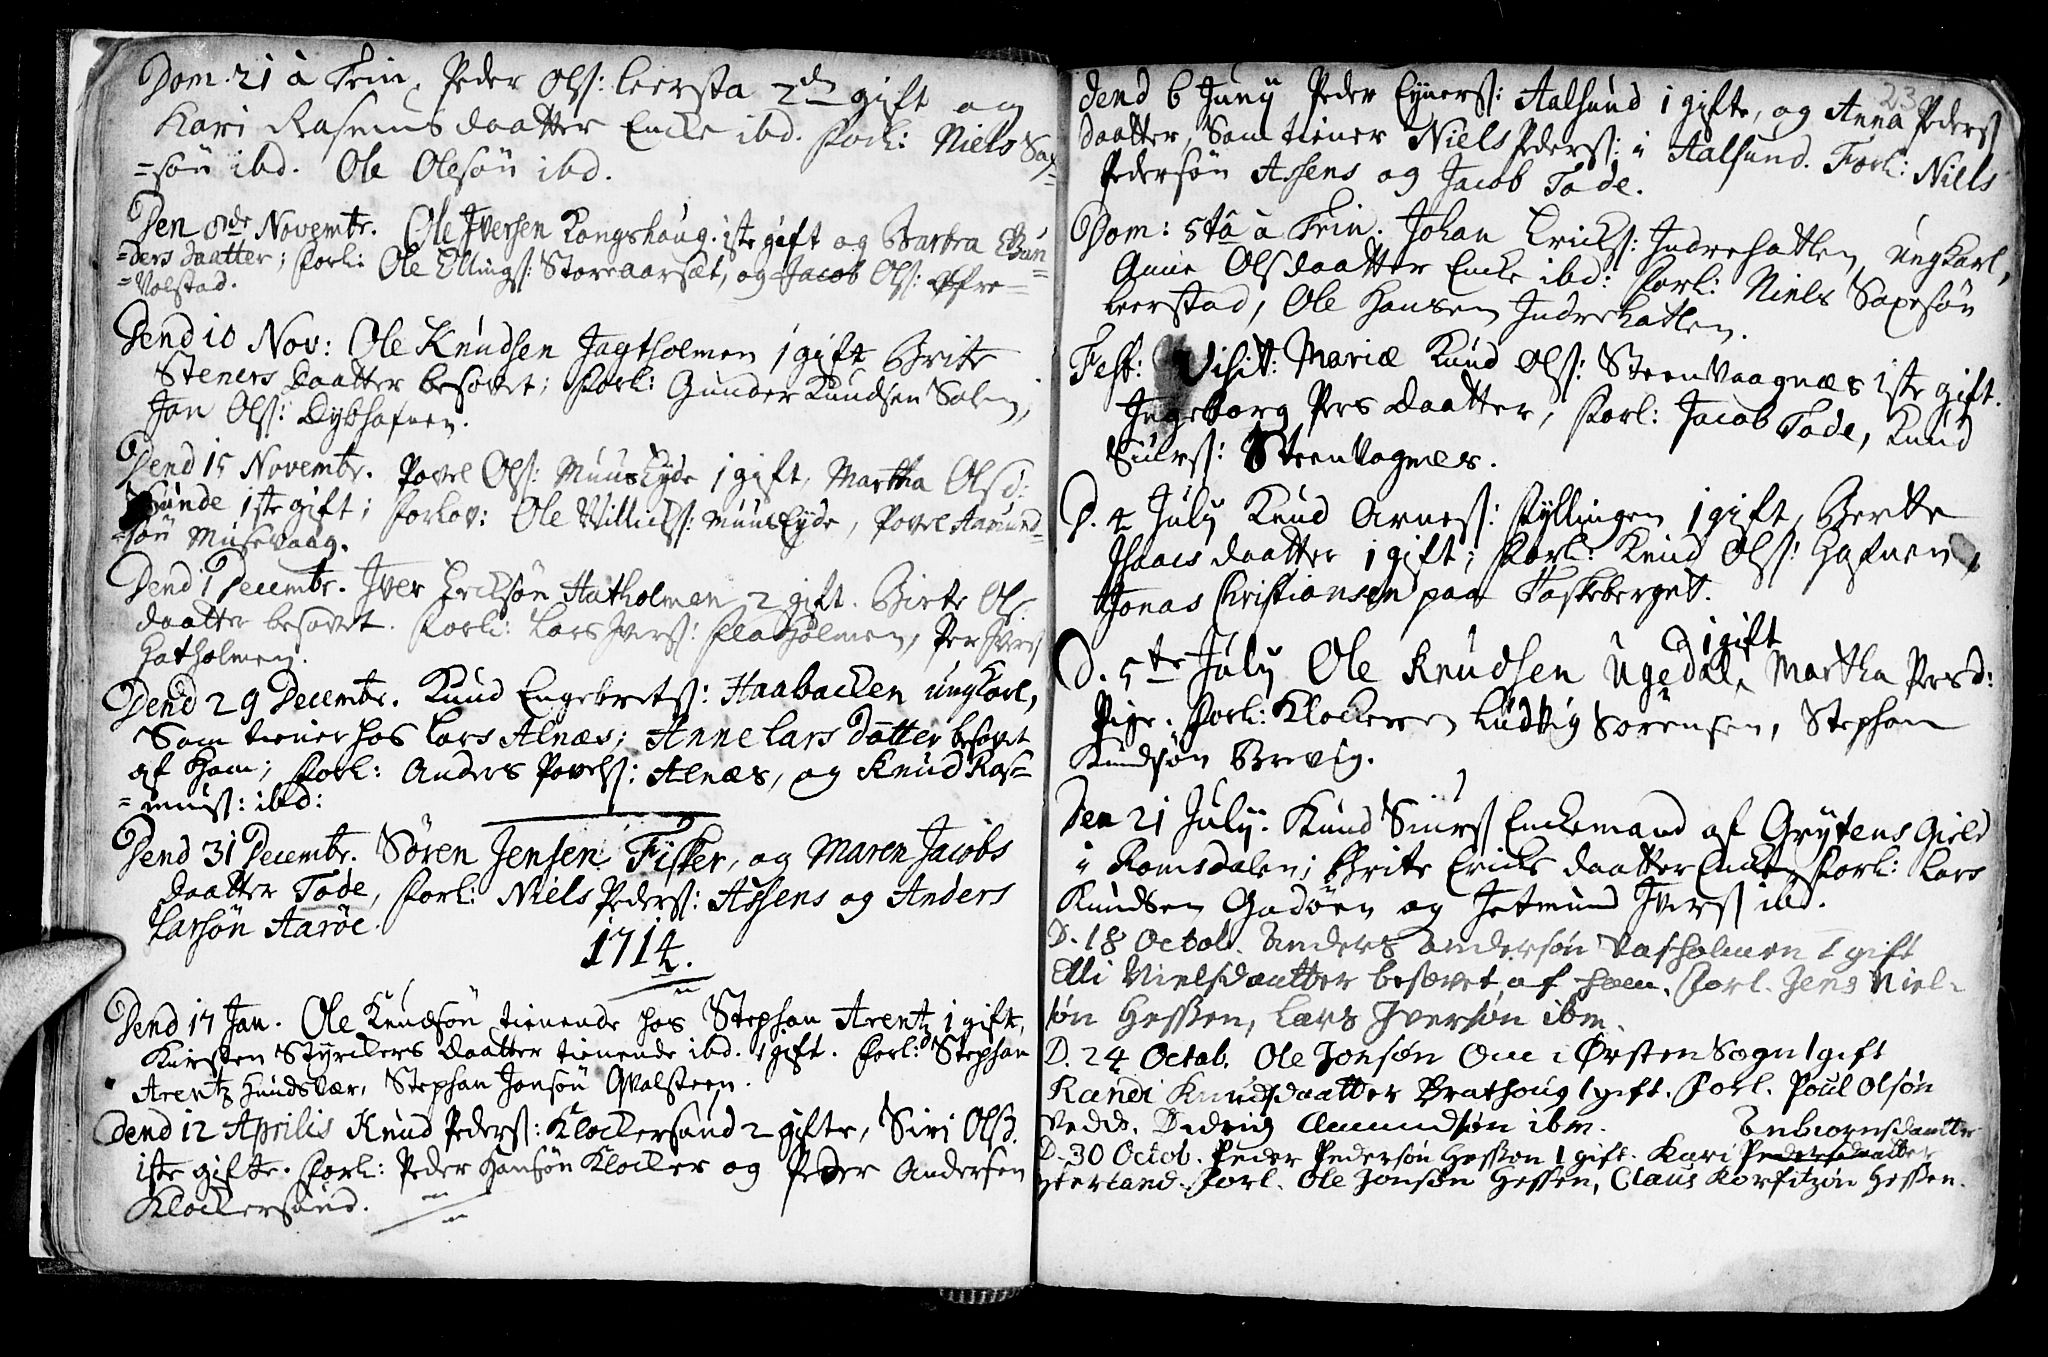 Dom. 21 à Trin. Peder Olß: leersta 2den gift og
Kari Rasmusdaatter Encke ibd. Forl: Niels Sax
=søn ibd. Ole Olesøn ibd.
Den Novembr. Ole Iversen Kongshaug. 1ste gift og Barbra Gun=
=ders daatter; Forl: Ole Ellingß: Storeaarsæt, og Jacob Olß: Øfre=
=Volstad.
Dend 10 Nov: Ole Knudsen Jagtholmen 1 gift Brite
Steners Daatter besovet; Forl: Gunder Knudsen
Jon Olß: Dybhafnen.
Dend 15 Novembr. Povel Olß: Muuseyde 1 gift, Martha Olsd:
Sunde 1ste gift; Forlov: Ole Willichß: Muuseyde, Povel Aamund=
=søn Musevaag.
Dend 1 Decembr. Iver Ericksøn Hatholmen 2 gift. Birte Ols
daatter besovet. Forl: Lars Iverß: Flatholmen, Per Iverß
Hatholmen.
Dend 29 Decembr. Knud Engebretß: Haabacken ungkarl,
Som tiener hos Lars Alnæs; Anne Lars Datter besovet
af ham; Forl: Anders Povelß: Alnæs, og Knud Ras=
=musß: ibd:
Dend 31 Decembr. Søren Jensen Fisker, og Maren Jacobs
daatter Tode, Forl: Niels Pederß: Assens og Anders
Larsøn Aarøe.
1714.
Dend 17 Jan. Ole Knudsøn tienende hos Stephan Arentz 1 gift,
Kirsten Styrckers Daatter tienende ibd. 1 gift. Forl: Stephan
Arentz Hundsvær, Stephan Jonsøn Qvalsteen.
Dend 12 Aprilis Knud Pederß: Klockersund 2 gifte, Siri Olsd.
1ste gifte. Forl: Peder Hansøn Klocker og Peder Andersen
Klockersund.
23
Dend 6 Junij Peder Eynerß: Aalsund 1 gifte, og Anna Pederß
daatter, Som tiener Niels Pederß: i Aalsund. Forl: Niels
Pedersøn Assens og Jacob Tode.
Dom: 5ta à Trin. Johan Erickß: Indrehatlen ungkarl,
Anne Olsdaatter Encke ibd: Forl: Niels Saxesøn
leerstad, Ole Hansen Indrehatlen.
Fest: Visit: Mariæ Knud Olß: Steenvaagnæs 1ste gift.
Ingeborg Pers Daatter, Forl: Jacob Tode, Knud
Siurß: Steenvagnes.
D. 4 July Knud Arneß: Fyllingen 1 gift, Berte
Isaacs daatter 1 gift; Forl: Knud Olß: Hafnen,
Jonas Christiansen paa Taskeberget.
1 gift
D. 5te July Ole Knudsen Ugedal, Martha Persd:
Pige. Forl: Klockeren Ludvig Sørensen, Stephan
Knudsøn Brevig.
Den 21 July. Knud Siurß Enckemand af Grytens Gield
i Romsdalen; Brite Ericks daatter Encke, Forl: Lars
Knudsen Godøen og Jetmund Iverß ibd.
D. 18 Octob. Anders Andersøn Vasholmen 1 gift
Elli Nielsdaatter besovet af ham. Forl. Jens Niel-
søn Hessen, Lars Iversøn ibm.
D. 24 Octob. Ole Jonsøn Ose i Ørsten Sogn 1 gift
Randi Knudsdaatter Brathoug 1 gift. Forl. Poul Olsøn
Vedde. Didrig Amundsøn ibm.
Enbiornsdaatter
D. 30 Octob. Peder Pedersøn Hessen 1 gift. Kari Pedersdaatter
Forl. Ole Jonsøn Hessen, Claus Korfitzøn Hessen.